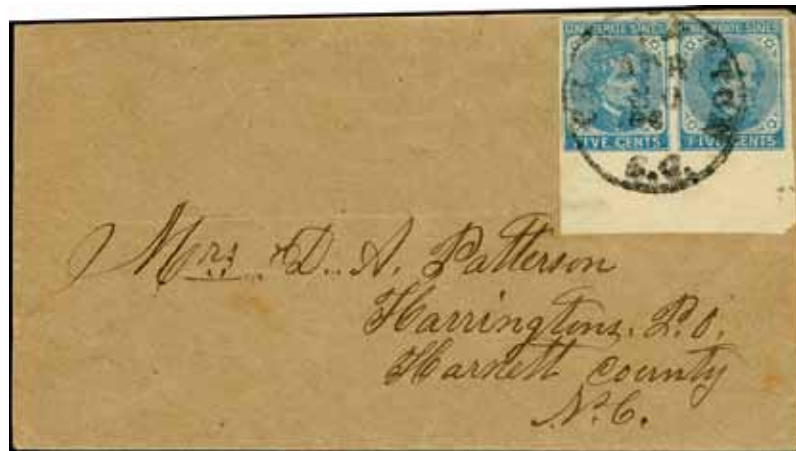 CONFEDERATE STATES CONFEDERATE STATES
FIVE CENTS FIVE CENTS
S.C.
Mrs. D. A. Patterson
Harringtons. P.O.
Harnett County
N.C.